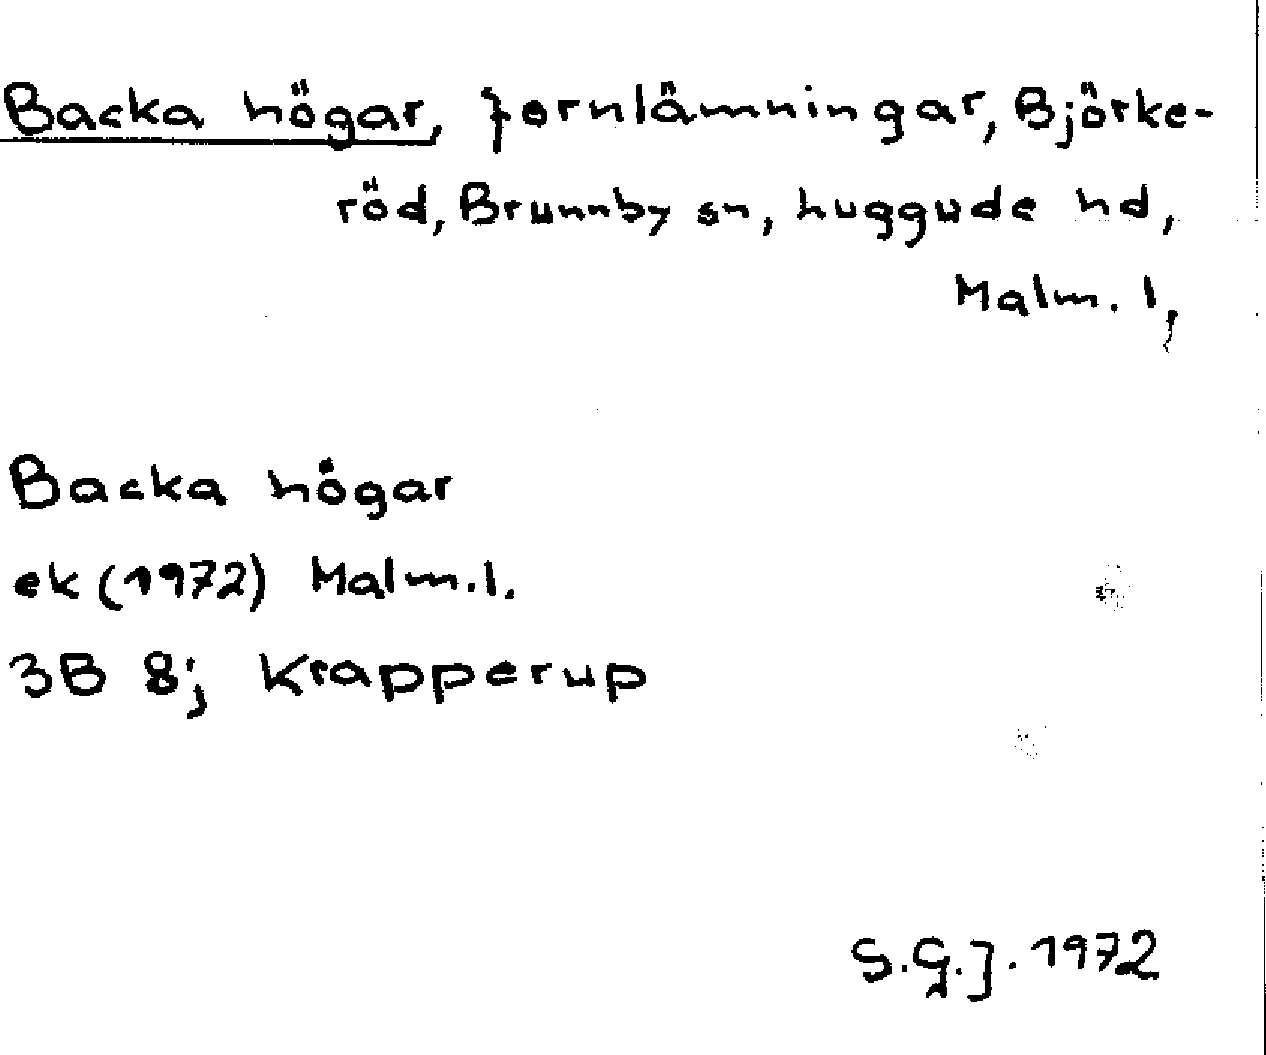 Backa högar, fornlämningar, Björke-
röd, Brunnby sn, huggude hd,
Malm. l,
Backa högar
ek (1972) Malm.l.
3B 8j Krapperup
S.G.J. 1972